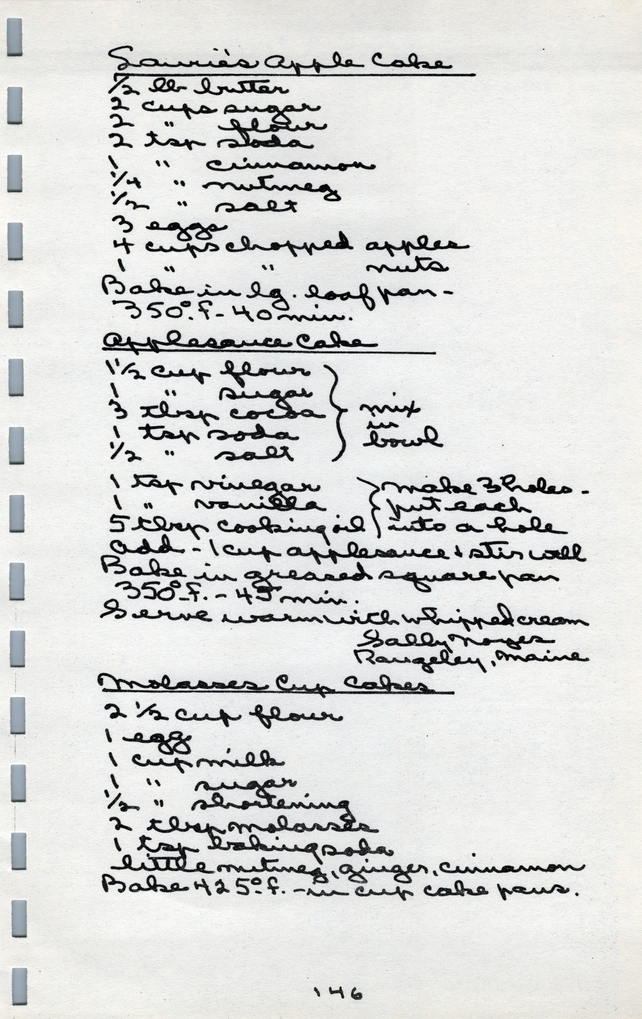 Laurie's Apple Cake
1/2 lb butter
2 cups sugar
2 " flour
2 tsp soda
1 " cinnamon
1/4 " nutmeg
1/2 " salt
3 eggs
4 cups chopped apples
1 " " nuts
Bake in lg. loaf pan -
350°.f. - 40 min.
Applesauce Cake
1 1/2 cup flour
1 " sugar
3 tbsp cocoa
1 tsp soda
1/2 " salt
mix
in
bowl
1 tsp vinegar
1 " vanilla
5 tbsp cooking oil
make 3 holes -
put each
into a hole
add - 1 cup applesauce & stir well
Bake in greased square pan
350°.f. - 45 min.
Serve warm with whipped cream
Sally Noyes
Rangeley, Maine
Molasses Cup Cakes
2 1/2 cup flour
1 egg
1 cup milk
1 " sugar
1/2 " shortening
2 tbsp molasses
1 tsp baking soda
little nutmeg, ginger, cinnamon
Bake 425°.f. - in cup cake pans.
146